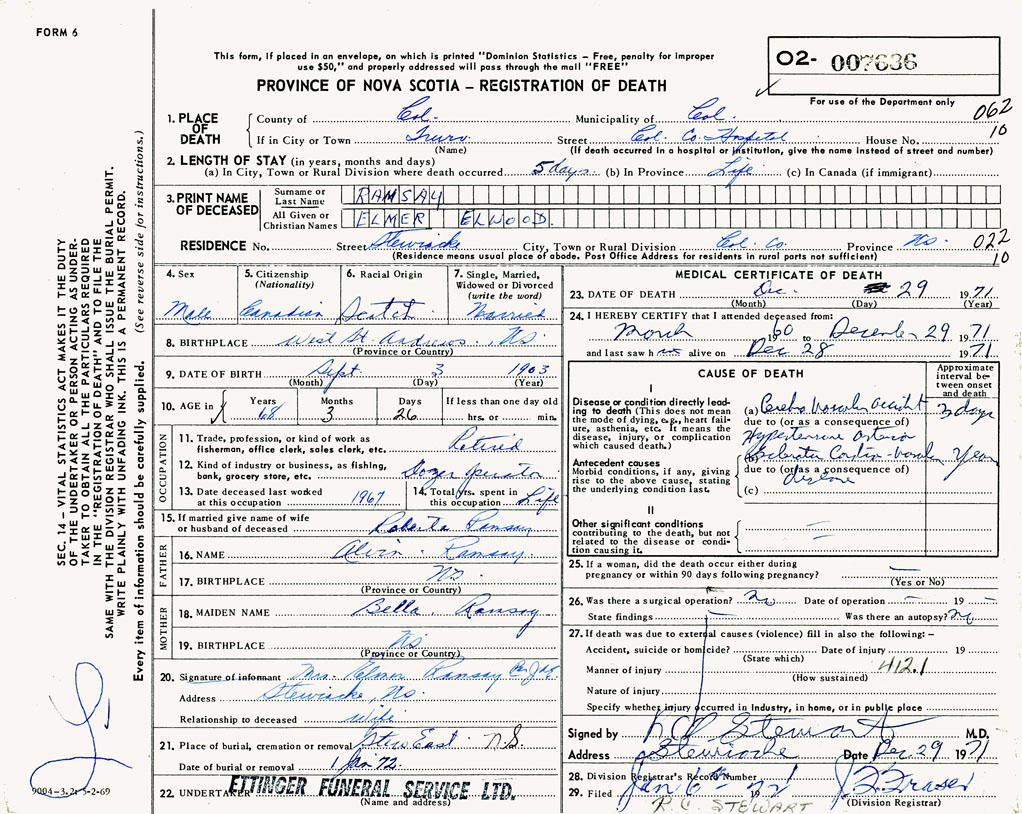 FORM 6
This form, if placed in an envelope, on which is printed "Dominion Statistics – Free, penalty for improper
use $50," and properly addressed will pass through the mail "FREE"
02- 007636
PROVINCE OF NOVA SCOTIA – REGISTRATION OF DEATH
For use of the Department only
062
10
1. PLACE OF DEATH
County of Col. Municipality of Col.
If in City or Town Truro Street Col. Co. Hospital House No.
(Name) (If death occurred in a hospital or institution, give the name instead of street and number)
2. LENGTH OF STAY (in years, months and days)
(a) In City, Town or Rural Division where death occurred 5 days (b) In Province Life (c) In Canada (if immigrant)
3. PRINT NAME OF DECEASED
Surname or Last Name RAMSAY
All Given or Christian Names ELMER ELWOOD.
RESIDENCE No. Street Stewiacke City, Town or Rural Division Col. Co. Province Ns. 022
(Residence means usual place of abode. Post Office Address for residents in rural parts not sufficient) 10
4. Sex
Male
5. Citizenship
(Nationality)
Canadian
6. Racial Origin
Scotch
7. Single, Married,
Widowed or Divorced
(write the word)
Married
8. BIRTHPLACE West St. Andrews, Ns.
(Province or Country)
9. DATE OF BIRTH Sept 3 1903
(Month) (Day) (Year)
10. AGE in
Years
68
Months
3
Days
26
If less than one day old
hrs. or min.
OCCUPATION
11. Trade, profession, or kind of work as
fisherman, office clerk, sales clerk, etc. Retired
12. Kind of industry or business, as fishing,
bank, grocery store, etc. Dozer Operator
13. Date deceased last worked
at this occupation 1967
14. Total yrs. spent in
this occupation Life
15. If married give name of wife
or husband of deceased Roberta Ramsay
FATHER
16. NAME Alvin Ramsay.
17. BIRTHPLACE Ns.
(Province or Country)
MOTHER
18. MAIDEN NAME Bella Ramsay
19. BIRTHPLACE Ns.
(Province or Country)
20. Signature of informant Mrs. Elmer Ramsay
Address Stewiacke, Ns.
Relationship to deceased Wife
21. Place of burial, cremation or removal Stew East N.S.
Date of burial or removal 1 Jan 72
22. UNDERTAKER ETTINGER FUNERAL SERVICE LTD.
(Name and address)
MEDICAL CERTIFICATE OF DEATH
23. DATE OF DEATH Dec. 29 1971
(Month) (Day) (Year)
24. I HEREBY CERTIFY that I attended deceased from:
March 1960 to December 29 1971
and last saw h alive on Dec 28 1971
CAUSE OF DEATH
Approximate
interval be-
tween onset
and death
I
Disease or condition directly lead-
ing to death (This does not mean
the mode of dying, e.g., heart fail-
ure, asthenia, etc. It means the
disease, injury, or complication
which caused death.)
(a) Cerebro Vascular Accident 3 days
due to (or as a consequence of)
Antecedent causes
Morbid conditions, if any, giving
rise to the above cause, stating
the underlying condition last.
Hypertensive Arterio
(b) Sclerotic Cardio-vascular Years
due to (or as a consequence of)
disease
(c)
II
Other significant conditions
contributing to the death, but not
related to the disease or condi-
tion causing it.
25. If a woman, did the death occur either during
pregnancy or within 90 days following pregnancy? –
(Yes or No)
26. Was there a surgical operation? No Date of operation – 19 –
State findings – Was there an autopsy? No
27. If death was due to external causes (violence) fill in also the following:–
Accident, suicide or homicide? Date of injury 19
(State which)
Manner of injury 412.1
(How sustained)
Nature of injury
Specify whether injury occurred in Industry, in home, or in public place
Signed by R C Stewart M.D.
Address Stewiacke Date Dec 29 1971
28. Division Registrar's Record Number
29. Filed Jan 6th 1972 J. F. Fraser
R.C. STEWART (Division Registrar)
SEC. 14 – VITAL STATISTICS ACT MAKES IT THE DUTY
OF THE UNDERTAKER OR PERSON ACTING AS UNDER-
TAKER TO OBTAIN ALL THE PARTICULARS REQUIRED
IN THE "REGISTRATION OF DEATH" AND TO FILE THE
SAME WITH THE DIVISION REGISTRAR WHO SHALL ISSUE THE BURIAL PERMIT.
WRITE PLAINLY WITH UNFADING INK. THIS IS A PERMANENT RECORD.
Every item of information should be carefully supplied. (See reverse side for instructions.)
9004-3.2: 5-2-69